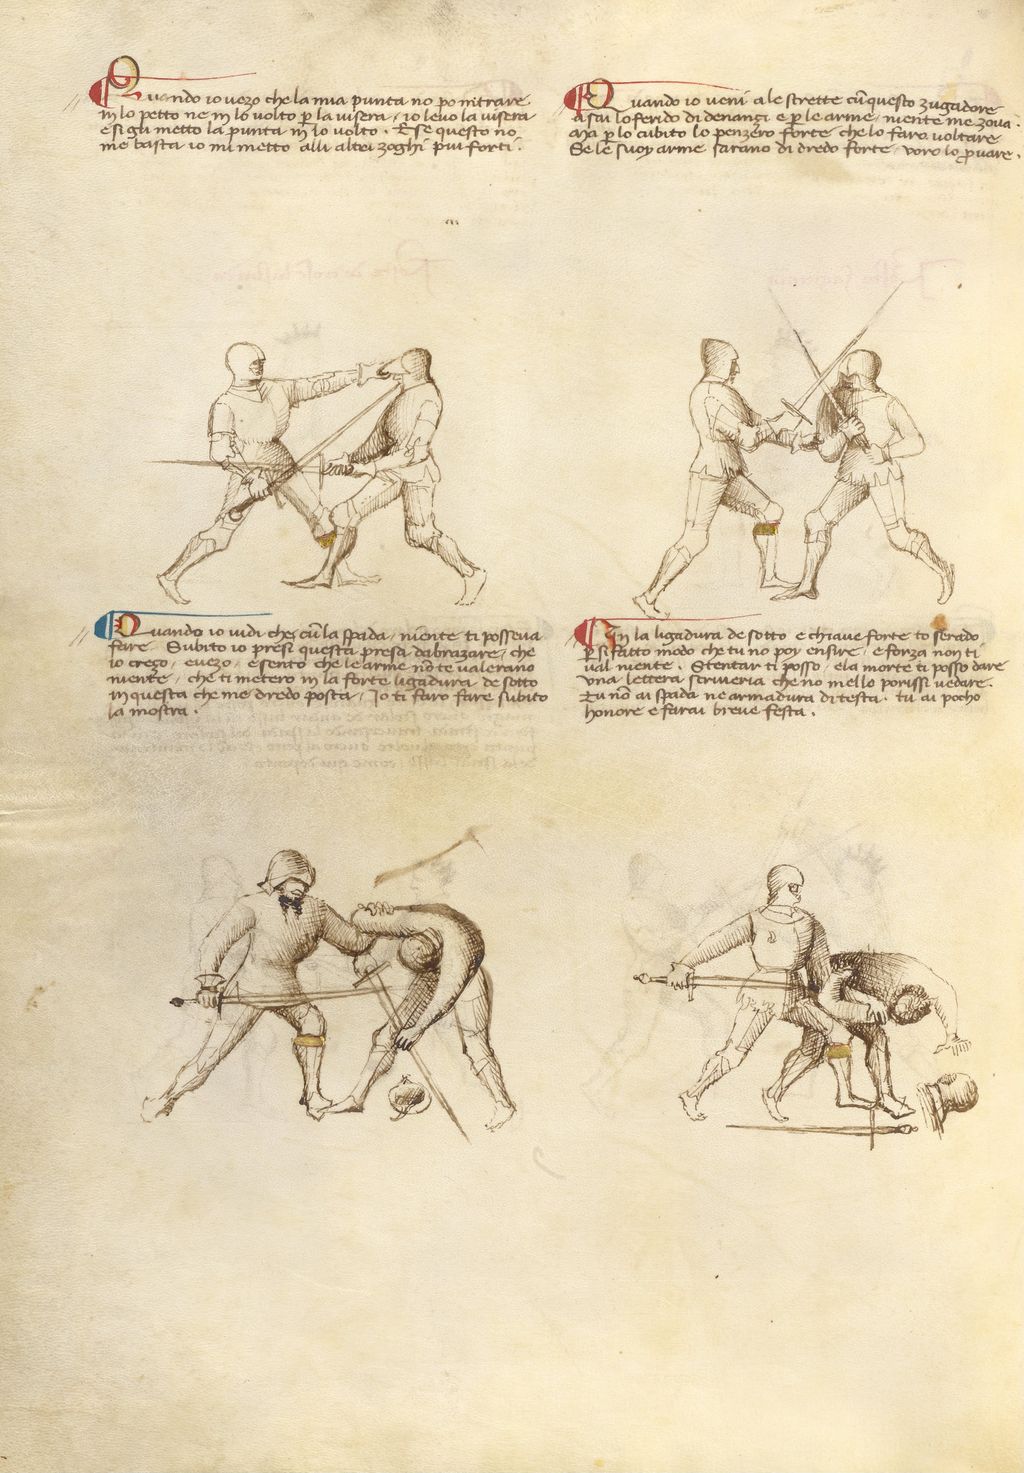 Quando io vezo che la mia punta no po nitrare
in lo petto ne in lo volto p la visera / io levo la visera
e si gli metto la punta in lo volto. E se questo no
me basta io mi metto alli altri zoghi piu forti.
Quando io veni ale strette cu questo zugadore
asai lo ferido di denançi e p le arme / niente me zova.
Ma p lo cubito lo penzero forte che lo faro voltare
Se le suoy arme sarano di dredo forte / voro lo p̱vare.
Quando io vidi che cu la spada / niente ti posseva
fare. Subito io presi questa presa dabrazare / che
io crezo / e vezo / e sento che le arme no te valerano
niente / che ti metero in la forte ligadura de sotto
in questa che me dredo posta / Io ti faro fare subito
la mostra.
In la ligadura de sotto e chiave forte to serado
p si fatto modo che tu no poy ensire / e forza non ti
val niente. Stentar ti posso / e la morte ti posso dare
una lettera scriveria che no mello porissi vedare.
Tu no ai spada ne armadura di testa. tu ai pocho
honore e farai breve festa.